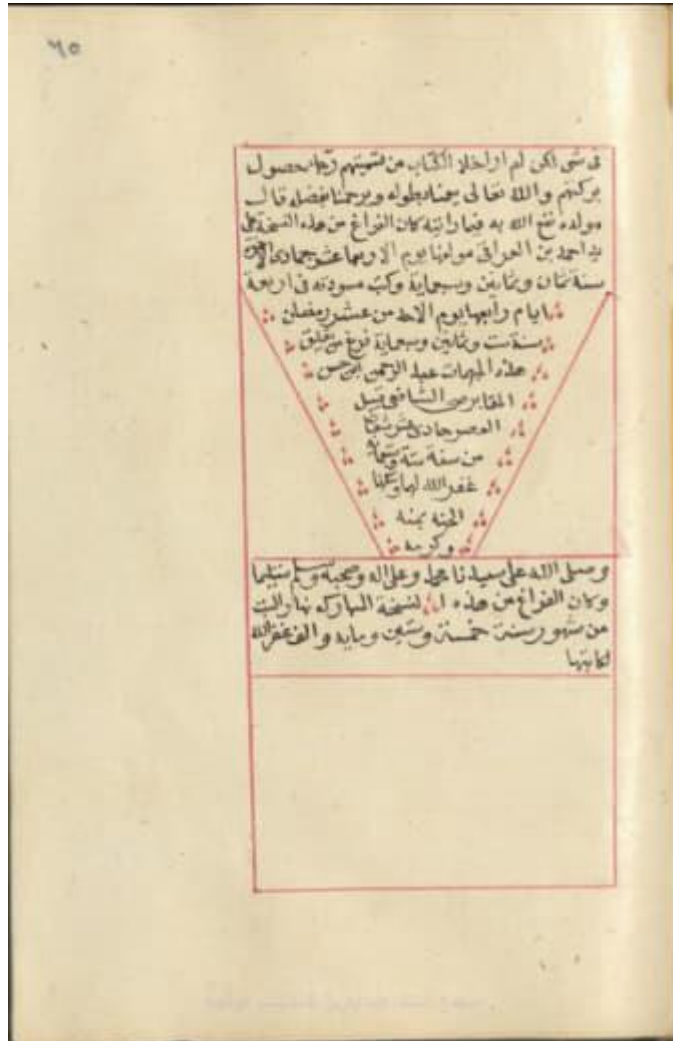 ٦٥
في شي لكن لم ار اخلاء الكتاب من تسميتهم رجاء حصول
بركتهم والله تعالى يعمنا بطوله ويرحمنا بفضله قال
مولفه نفع الله به فيما رايته كان الفراغ من هذه النسخة على
يد احمد بن العراقي مولفها يوم الاربعا عشر جمادى الاخرة
سنة ثمان وثمانين وسبعماية وكتب مسودته في اربعة
ايام رابعها يوم الاحد من عشر رمضان
سنة ست وثمانين وسبعماية فرغ من تعليق
هذه المبهمات عبد الرحمن بن حسن
المقابرصي الشافعي قبيل
العصر حادي عشر شعبان
من سنة ستة
غفر الله لهما
الجنة بمنه
وكرمه
وصلى الله على سيدنا محمد وعلى اله وصحبه وسلم تسليما
وكان الفراغ من هذه النسخة المباركه نهار السبت
من شهور سنة خمسة وستين ومايه والف غفر الله
لكاتبها